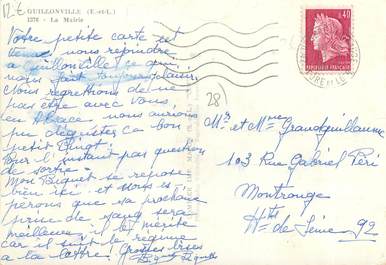 12 €
GUILLONVILLE (E.-et-L.)
1376 - La Mairie
Votre petite carte est
venue nous rejoindre
à Guillonville ce qui
nous fait toujours plaisir.
Nous regrettons de ne
pas être avec vous
en Alsace nous aurions
pu déguster ce bon
petit
Pour l'instant pas question
de sortie.
Mon Biquet se repose
bien ici et nous es
pérons que sa prochaine
prise de sang sera
meilleure, il le mérite
car il suit le régime
à la lettre. Grosses bises
0,40
REPUBLIQUE FRANÇAISE
28
Mr et Mme Grandguillaume
103 Rue Gabriel Péri
Montrouge
Hts de Seine 92